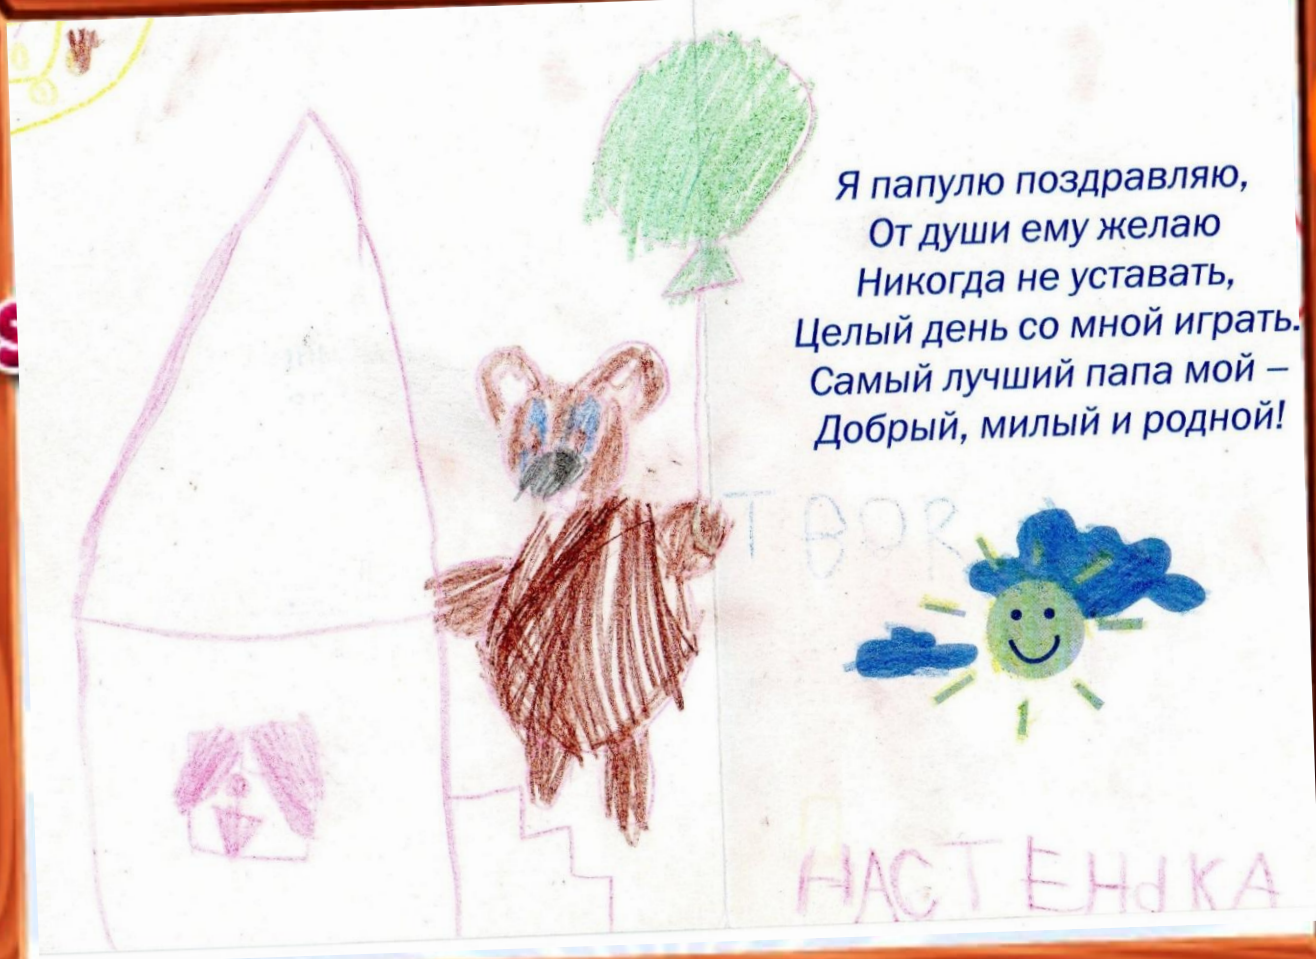 Я папулю поздравляю,
От души ему желаю
Никогда не уставать,
Целый день со мной играть.
Самый лучший папа мой –
Добрый, милый и родной!
ТВОЯ
НАСТЕНЬКА